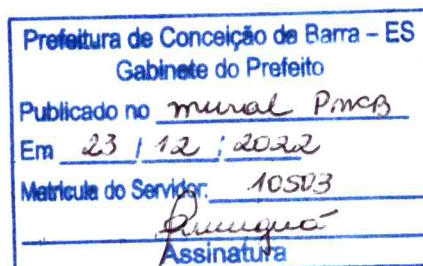 Prefeitura de Conceição da Barra – ES
Gabinete do Prefeito
Publicado no mural PMCB
Em 23 / 12 / 2022
Matrícula do Servidor: 10503
Assinatura